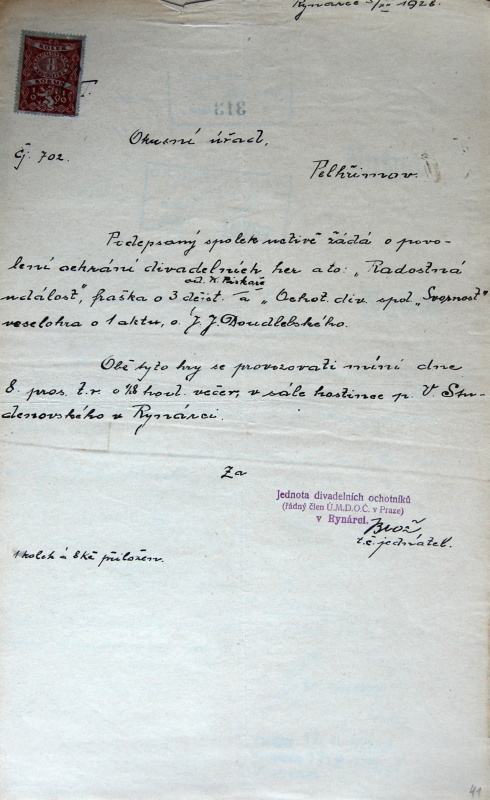 Rynárec 3/XII 1928.
KOLEK
8
KORUN
313
Okresní úřad,
Čj. 702.
Pelhřimov.
Podepsaný spolek uctivě žádá o povo-
lení sehrání divadelních her a to: „Radostná
od K. Piskoře
událost", fraška o 3 dějst. a „Ochot. div. spol. „Svornost"
veselohra o 1 aktu, o. J. J. Boudlebského.
Obě tyto hry se provozovati míní dne
8. pros. t. r. o ½8 hod. večer, v sále hostince p. V. Stu-
denovského v Rynárci.
Za
Jednota divadelních ochotníků
(řádný člen Ú.M.D.O.Č. v Praze)
v Rynárci.
Brož
t. č. jednatel.
1 kolek á 8 Kč přiložen.
41